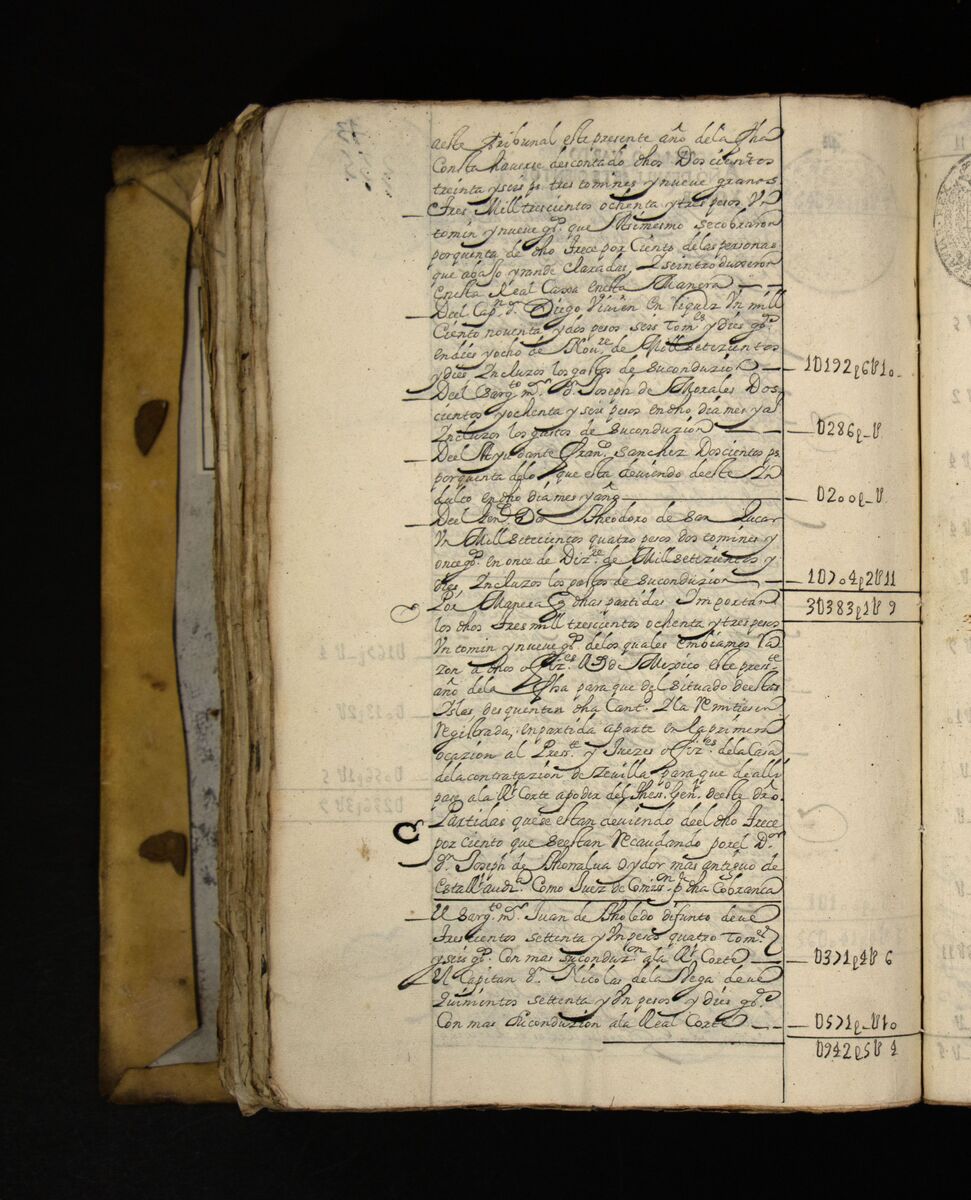 aeste Tribunal este presente añ. dela fha
Consta haverse descontado dhos Doscientos
treinta y seis ps. tres tomines y nueve granos
Tres Mill trescientos ochenta y tres pesos Vn
tomin y nueve gs. que Asimesmo se cobraron
por quenta de dho trece por Ciento de las personas
que aqa so yrande claradas, y seintroduxeron
en esta Real Caxa en esta Manera
Del Capn. Dn. Diego Vivien en Vi Vn mill
Ciento noventa y dos pesos seis Tomes y dies gs. 10192p6t10
en dies y ocho de Noure. de Mill setezientos
y dies Incluzos los gastos de su conduzion
Del Sargto. mr. Dn. Joseph de Morales Dos
cientos y ochenta y seis pesos en dho dia mes y a
Incluzos los gastos de su conduzion 0286p_t
Del Ayudante Franco. Sanchez Doscientos ps.
por quenta delo que esta deviendo de este In
dulto en dho dia mes y añ. 0200p_t
Del Gen. Don Theodoro de San Lucar
Vn Mill setecientos quatro pesos dos tomines y
once gs. en once de Dizre. de Mill setezientos y
dies, Incluzos los gastos de su conduzion 10704p2t11
Por Manera q dhas partidas Importan 30383p1t9
los dhos Tres mill trescientos ochenta y tres pesos
Vn tomin y nueve gs. delos quales embiamos Ra
zon a dhos ofizes. Rs de Mexico este preste.
año dela fha para que del situado de estas
Yslas, desquenten dha Cantd. y la Remitiesen
Registrada, en partida aparte en la primera
ocazion al Presste. y Juezes ofizes. de la Casa
de la contratazion de Sevilla para que de alli
pase a la Rl. Corte a poder del Theso. Genl. de este dro.
Partidas que se estan deviendo del dho Trece
por ciento que se estan Recaudando por el Dor.
Dn. Joseph de Thorralva Oydor mas antiguo de
esta Rl. audia. Como Juez de Comison. pa. dha Cobranca
El Sargto. mr. Juan de Tholedo difunto deve
Trescientos settenta y Vn pesos quatro Tomes
y seis gs. Con mas su conduzon. a la Rl. Corte 0371p4t6
El Capitan Dn. Nicolas de la Vega deve
Quinientos settenta y Vn pesos y dies gs.
Con mas su conduzion a la Real Corte 0571p_t10
0942p5t4